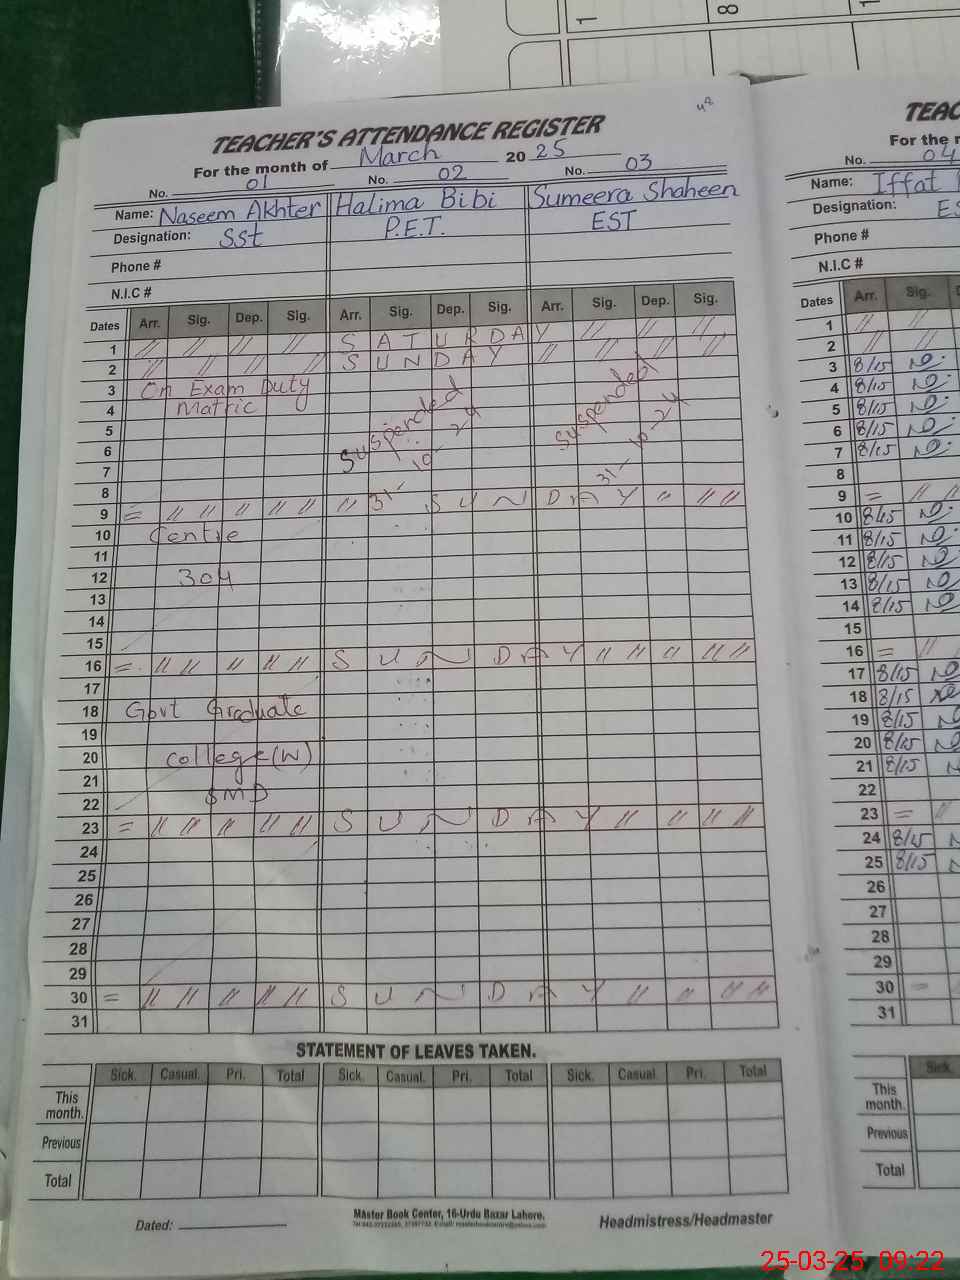 1
8
48
TEACHER'S ATTENDANCE REGISTER
For the month of March 2025
No. 01 No. 02 No. 03
Name: Naseem Akhter Halima Bibi Sumeera Shaheen
Designation: Sst P.E.T. EST
Phone #
N.I.C #
Dates Arr. Sig. Dep. Sig. Arr. Sig. Dep. Sig. Arr. Sig. Dep. Sig.
1 // // // // SATURDAY // // //
2 // // // // SUNDAY // // // //
3 On Exam Duty
4 Matric
Suspended Suspended
31-10-24 31-10-24
5
6
7
8
9 = // // // // // // SUNDAY // // //
10 Centre
11
12 304
13
14
15
16 = // // // // // SUNDAY // // // // //
17
18 Govt Graduate
19
20 College(W)
21
22 SMD
23 = // // // // // SUNDAY // // // //
24
25
26
27
28
29
30 = // // // // // SUNDAY // // // //
31
STATEMENT OF LEAVES TAKEN.
Sick. Casual. Pri. Total Sick. Casual. Pri. Total Sick. Casual. Pri. Total
This month.
Previous
Total
Dated:
Master Book Center, 16-Urdu Bazar Lahore.
Headmistress/Headmaster
TEAC
For the m
No. 04
Name: Iffat
Designation: ES
Phone #
N.I.C #
Dates Arr. Sig. D
1 // //
2 // //
3 8/15
4 8/15
5 8/15
6 8/15
7 8/15
8
9 = //
10 8/15
11 8/15
12 8/15
13 8/15
14 8/15
15
16 = //
17 8/15
18 8/15
19 8/15
20 8/15
21 8/15
22
23 = //
24 8/15
25 8/15
26
27
28
29
30 =
31
Sick.
This month.
Previous
Total
25-03-25 09:22